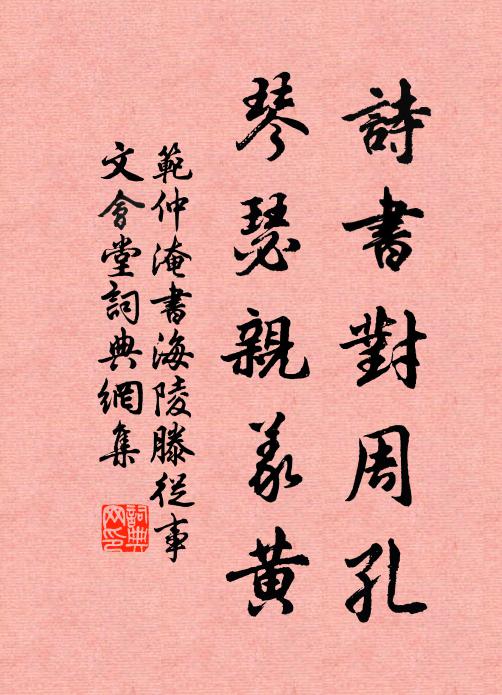 詩書對周孔
琴瑟親羲黃
範仲淹書海陵滕從事
文會堂詞典網集
詞典网印